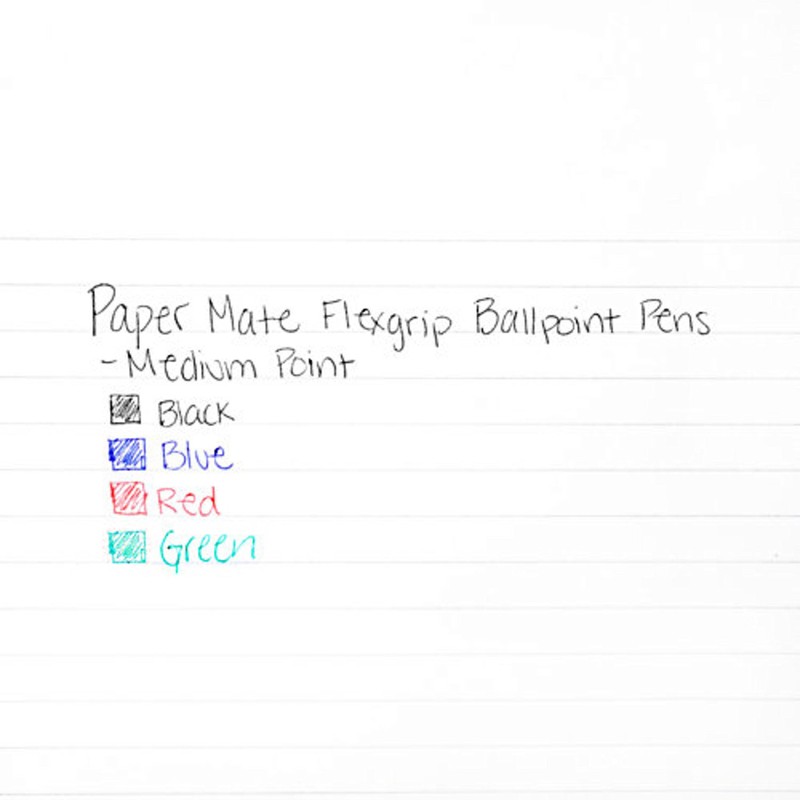 Paper Mate Flexgrip Ballpoint Pens
- Medium Point
Black
Blue
Red
Green